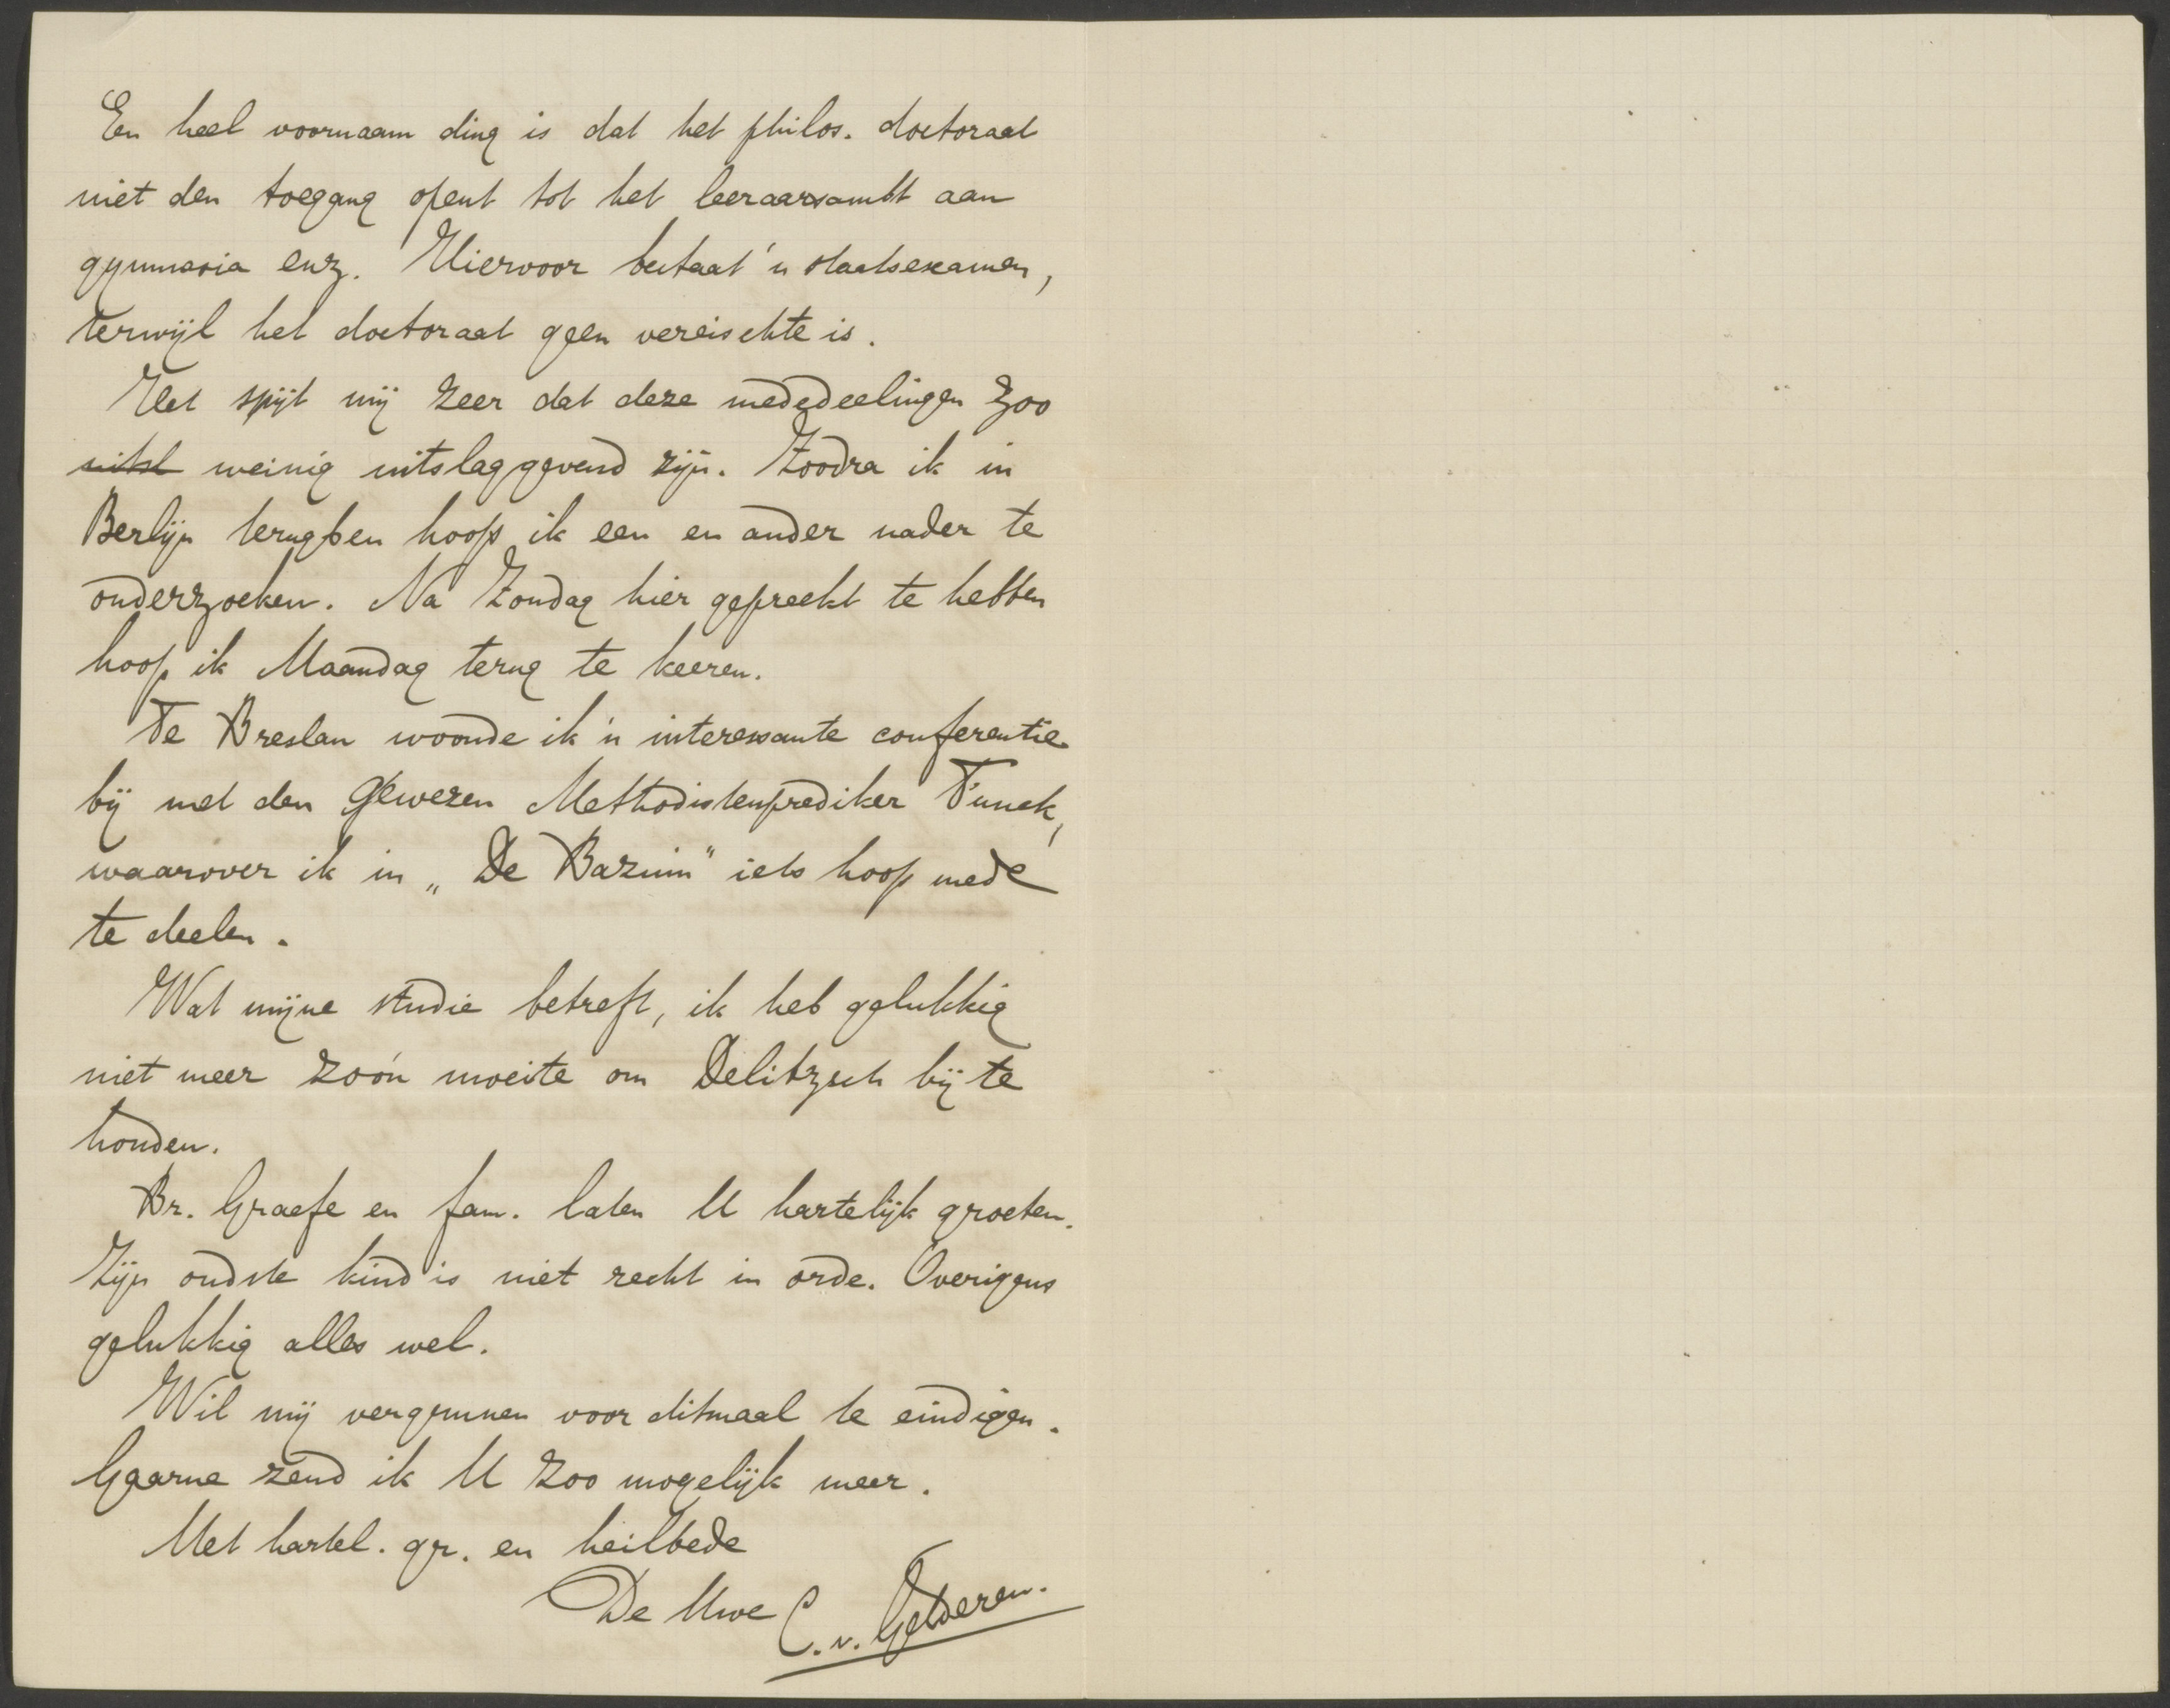 Een heel voornaam ding is dat het philos. doctoraat
niet den toegang opent tot het leeraarsambt aan
gymnasia enz. Hiervoor bestaat 'n staatsexamen,
terwijl het doctoraat geen vereischte is.
Het spijt mij zeer dat deze mededeelingen zoo
weinig uitslaggevend zijn. Zoodra ik in
Berlijn terugben hoop ik een en ander nader te
onderzoeken. Na Zondag hier gepreekt te hebben
hoop ik Maandag terug te keeren.
Te Breslau woonde ik 'n interessante conferentie
bij met den gewezen Methodistenprediker
waarover ik in „De Bazuin" iets hoop mede
te deelen.
Wat mijne studie betreft, ik heb gelukkig
niet meer zoo'n moeite om Delitzsch bij te
houden.
Br. Graefe en fam. laten U hartelijk groeten.
Zijn oudste kind is niet recht in orde. Overigens
gelukkig alles wel.
Wil mij vergunnen voor ditmaal te eindigen.
Gaarne zend ik U zoo mogelijk meer.
Met hartel. gr. en heilbede
De Uwe C. v. Gelderen.